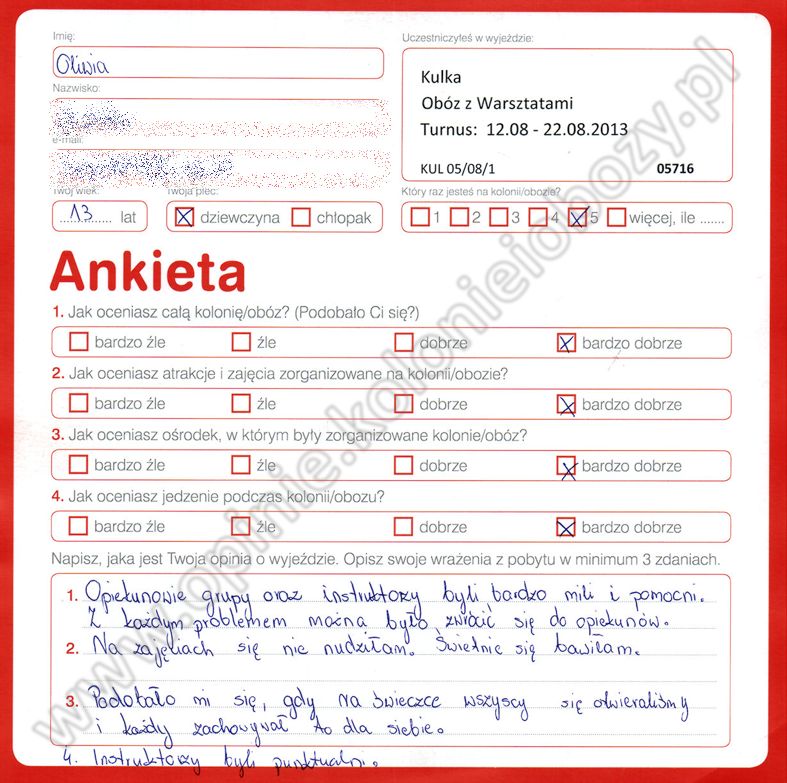 Imię:
Oliwia
Nazwisko:
e-mail:
Twój wiek:
13 lat
Twoja płeć:
dziewczyna chłopak
Uczestniczyłeś w wyjeździe:
Kulka
Obóz z Warsztatami
Turnus: 12.08 - 22.08.2013
KUL 05/08/1 05716
Który raz jesteś na kolonii/obozie?
1 2 3 4 5 więcej, ile .......
Ankieta
1. Jak oceniasz całą kolonię/obóz? (Podobało Ci się?)
bardzo źle źle dobrze bardzo dobrze
2. Jak oceniasz atrakcje i zajęcia zorganizowane na kolonii/obozie?
bardzo źle źle dobrze bardzo dobrze
3. Jak oceniasz ośrodek, w którym były zorganizowane kolonie/obóz?
bardzo źle źle dobrze bardzo dobrze
4. Jak oceniasz jedzenie podczas kolonii/obozu?
bardzo źle źle dobrze bardzo dobrze
Napisz, jaka jest Twoja opinia o wyjeździe. Opisz swoje wrażenia z pobytu w minimum 3 zdaniach.
1. Opiekunowie grupy oraz instruktorzy byli bardzo mili i pomocni.
Z każdym problemem można było zwrócić się do opiekunów.
2. Na zajęciach się nie nudziłam. Świetnie się bawiłam.
3. Podobało mi się, gdy na świeczce wszyscy się otwieraliśmy
i każdy zachowywał to dla siebie.
4. Instruktorzy byli punktualni.
www.opinie.kolonieiobozy.pl